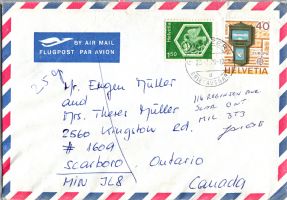 BY AIR MAIL
FLUGPOST PAR AVION
Helvetia
150
40
HELVETIA
Mr. Eugen Müller
and
Mrs. Theres Müller
2560 Kingston Rd.
# 1604
Scarboro, Ontario
MIN 1L8
Canada
SCAR ONT
MIL 3T3